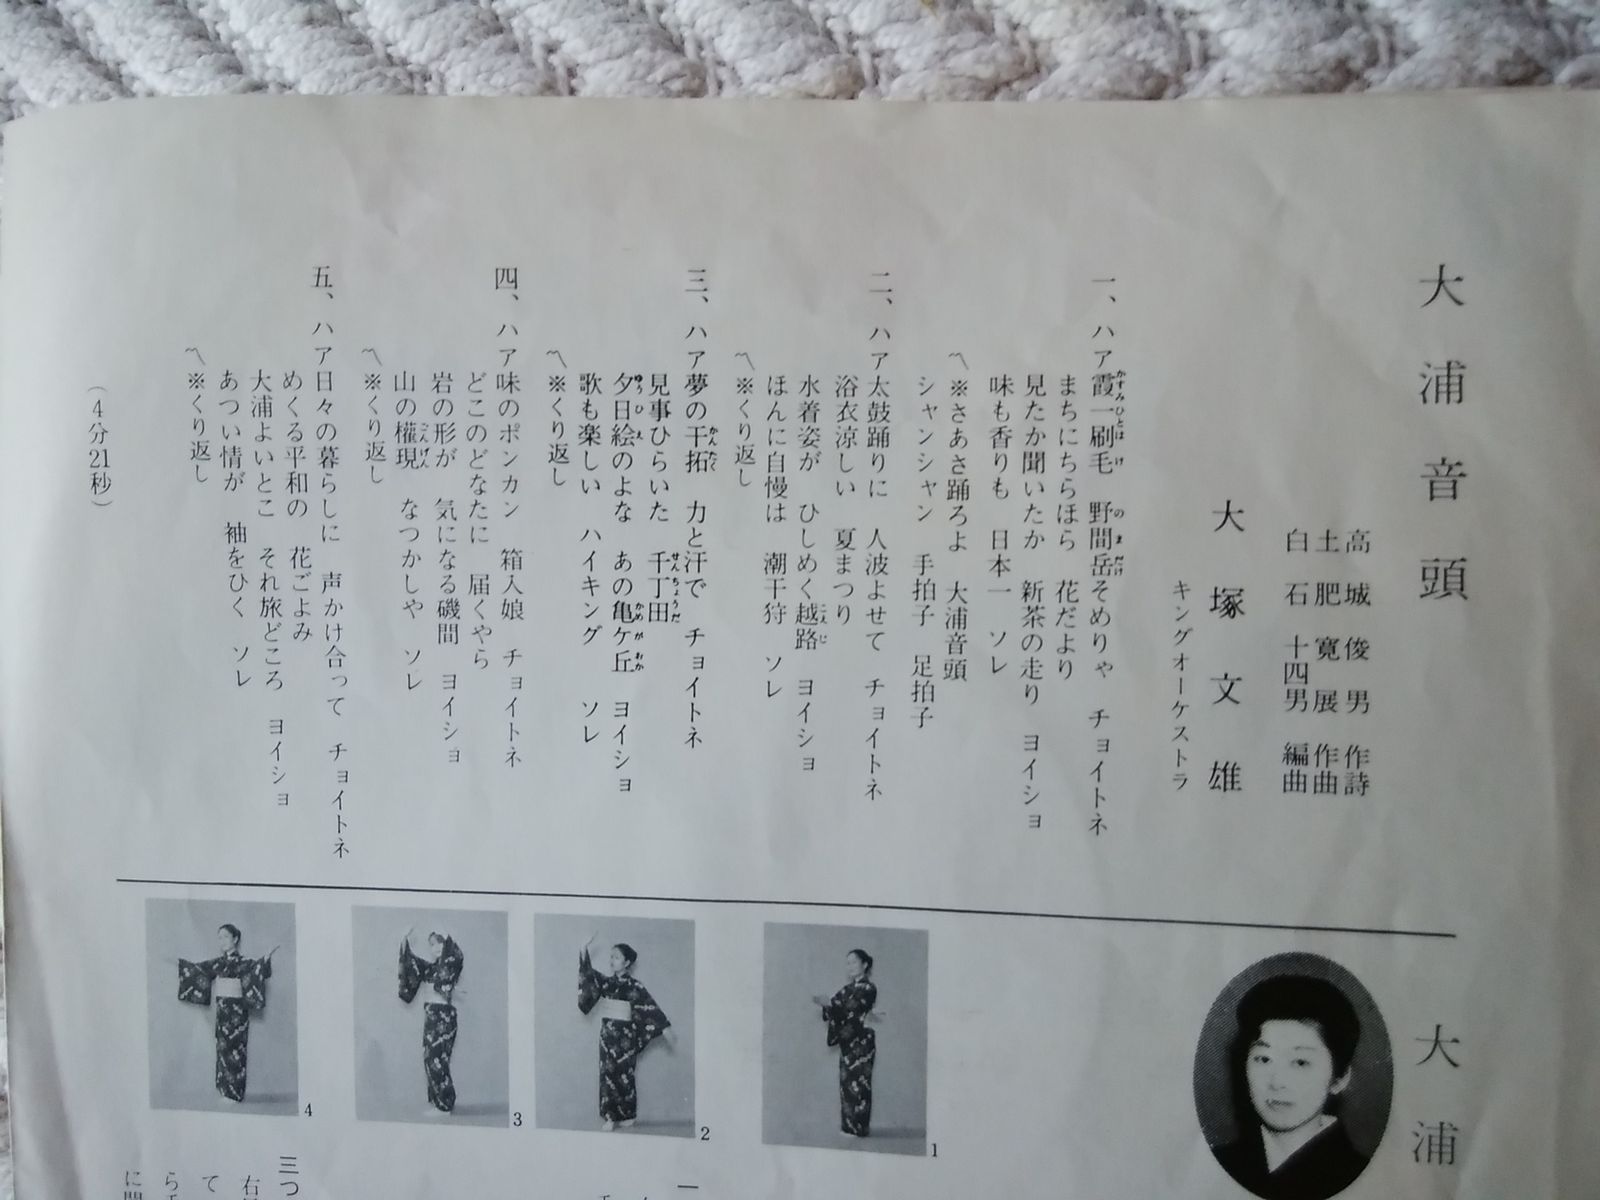 大浦音頭
高城俊男 作詩
土肥寛展 作曲
白石十四男 編曲
大塚文雄
キングオーケストラ
一、ハア霞一刷毛 野間岳そめりゃ チョイトネ
かすみひとはけ のまだけ
まちにちらほら 花だより
見たか聞いたか 新茶の走り ヨイショ
味も香りも 日本一 ソレ
〽※さあさ踊ろよ 大浦音頭
シャンシャン 手拍子 足拍子
二、ハア太鼓踊りに 人波よせて チョイトネ
浴衣涼しい 夏まつり
水着姿が ひしめく越路 ヨイショ
こえじ
ほんに自慢は 潮干狩 ソレ
〽※くり返し
三、ハア夢の干拓 力と汗で チョイトネ
かんたく
見事ひらいた 千丁田
せんちょうだ
夕日絵のよな あの亀ケ丘 ヨイショ
ゆうひ え かめがおか
歌も楽しい ハイキング ソレ
〽※くり返し
四、ハア味のポンカン 箱入娘 チョイトネ
どこのどなたに 届くやら
岩の形が 気になる磯間 ヨイショ
山の権現 なつかしや ソレ
ごんげん
〽※くり返し
五、ハア日々の暮らしに 声かけ合って チョイトネ
めくる平和の 花ごよみ
大浦よいとこ それ旅どころ ヨイショ
あつい情が 袖をひく ソレ
〽※くり返し
（4分21秒）
大浦
1
2
3
4
一
三つ
右
て